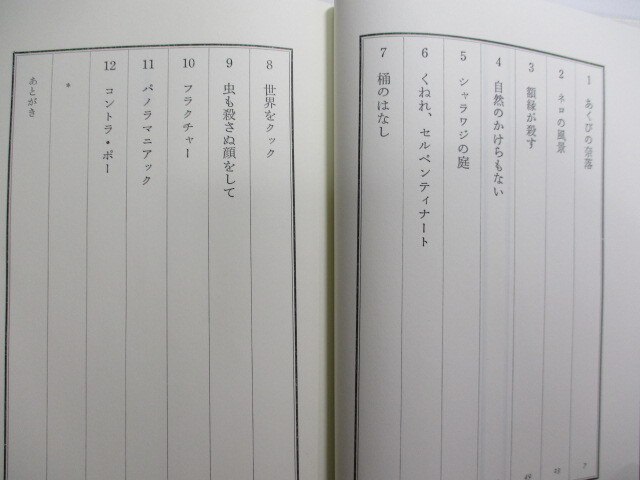 1 あくびの奈落
2 ネロの風景
3 額縁が殺す
4 自然のかけらもない
5 シャラワジの庭
6 くねれ、セルペンティナート
7 桶のはなし
8 世界をクック
9 虫も殺さぬ顔をして
10 フラクチャー
11 パノラマニアック
12 コントラ・ポー
*
あとがき